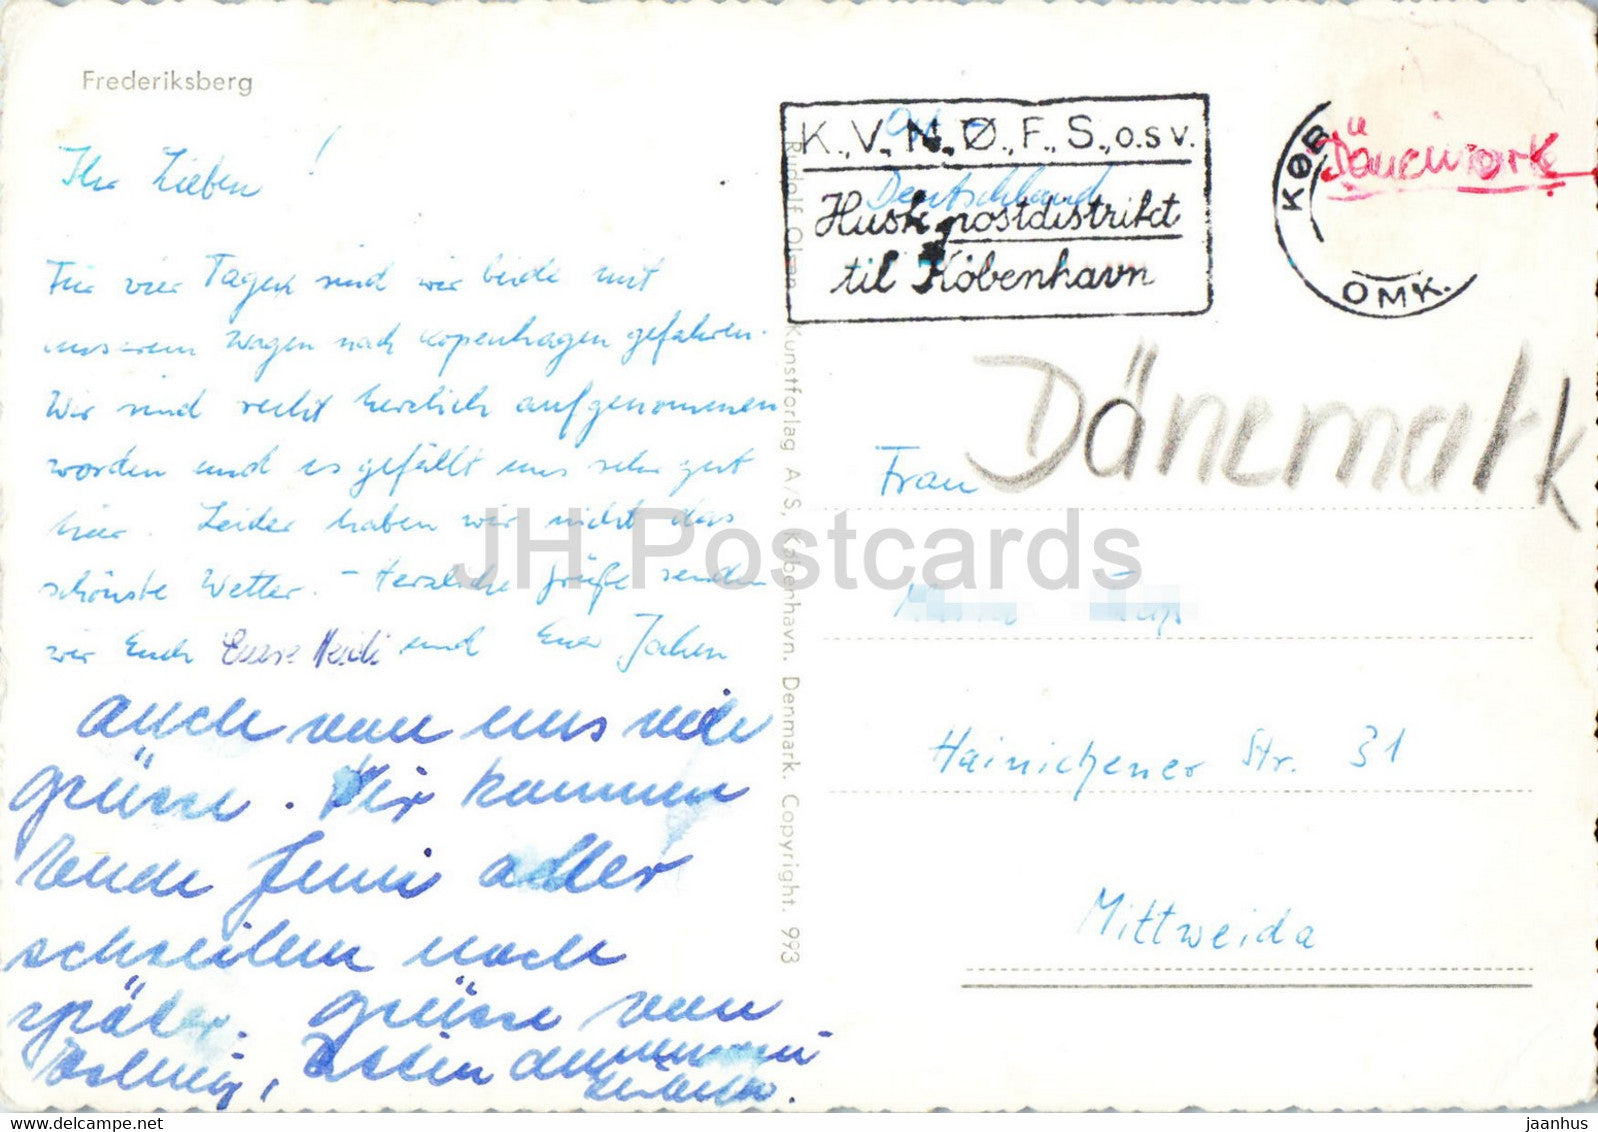 Frederiksberg
Ihr Lieben!
Für vier Tagen sind wir beide mit
unserem Wagen nach Kopenhagen gefahren.
Wir sind recht herzlich aufgenommenen
worden und es gefällt uns sehr gut
hier. Leider haben wir nicht das
schönste Wetter. - Herzliche Grüße senden
wir Euch Eure Heidi und Euer Jochen
auch von uns viele
grüsse. Wir kommen
ende Juni oder
schreiben noch
später. grüsse von
Rudolf Olsen Kunstforlag A/S, København. Denmark. Copyright. 993
K., V., N., Ø., F., S., o.s v.
Husk postdistrikt
til København
Deutschland
KØB
OMK.
Dänemark
Dänemark
Frau
Hainichener Str. 31
Mittweida
JH Postcards
jaanhus @ delcampe.net